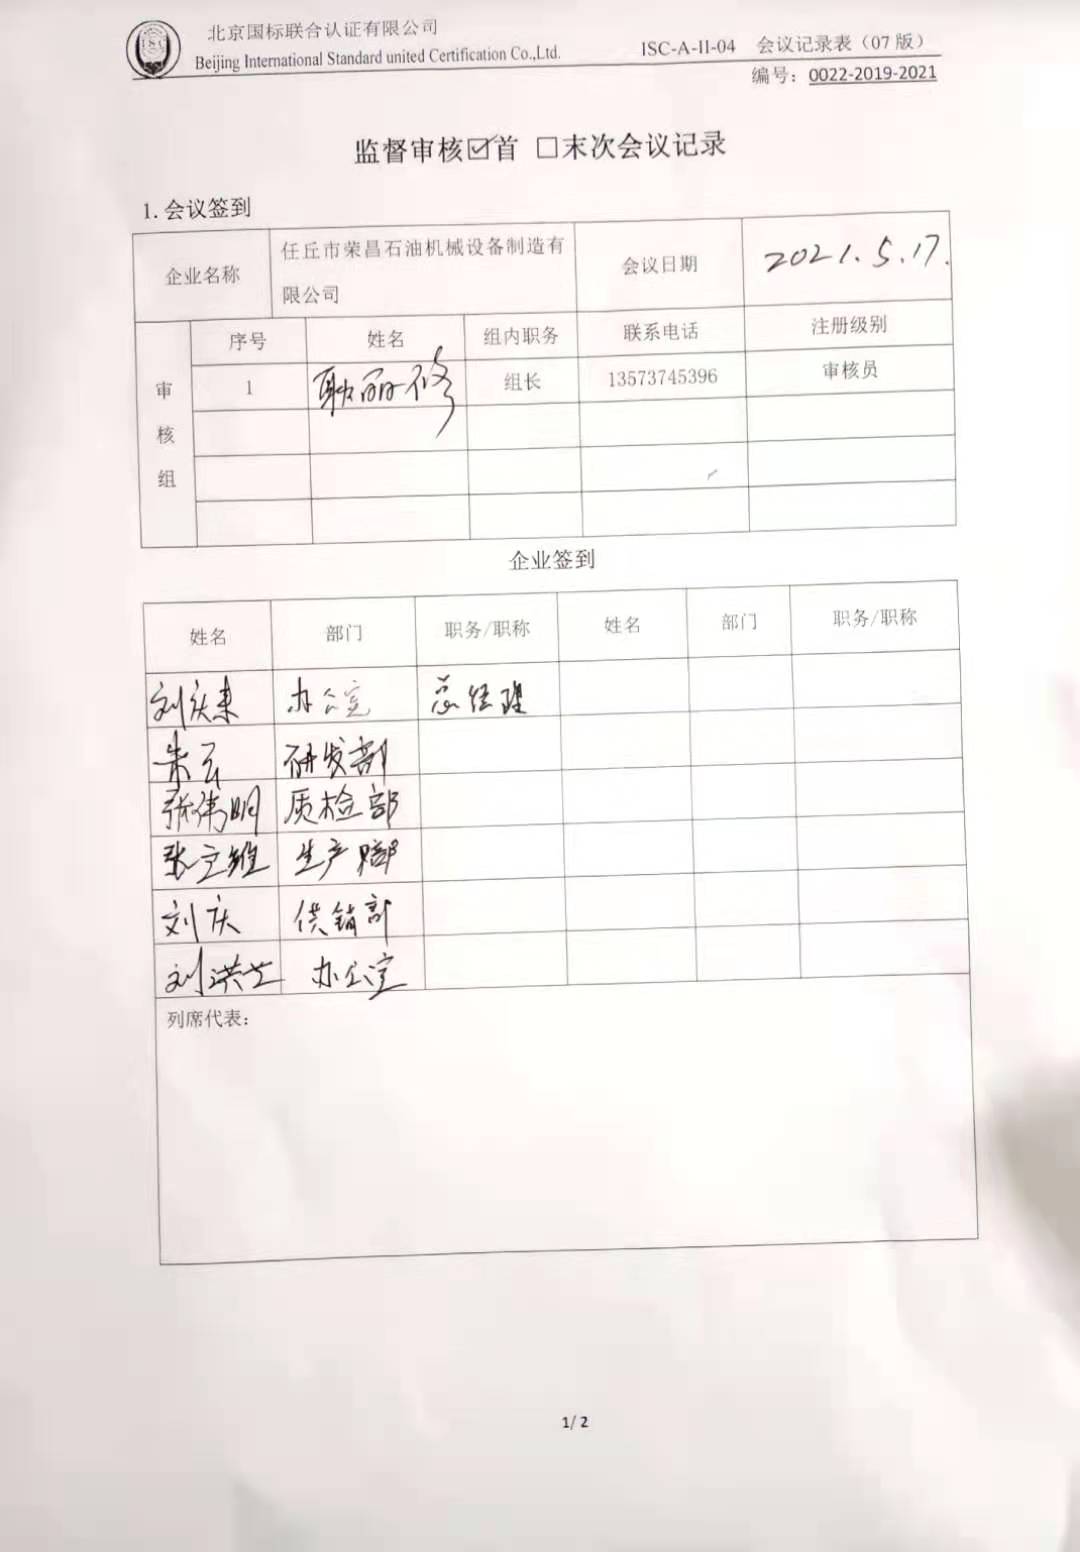 北京国标联合认证有限公司
Beijing International Standard united Certification Co.,Ltd.
ISC-A-II-04 会议记录表（07 版）
编号：0022-2019-2021
监督审核☑首 □末次会议记录
1. 会议签到
企业名称 任丘市荣昌石油机械设备制造有限公司 会议日期 2021.5.17.
审核组 序号 姓名 组内职务 联系电话 注册级别
1 耿丽修 组长 13573745396 审核员
企业签到
姓名 部门 职务/职称 姓名 部门 职务/职称
刘庆来 办公室 总经理
朱云 研发部
张伟明 质检部
张立维 生产部
刘庆 供销部
刘洪芝 办公室
列席代表：
1/ 2